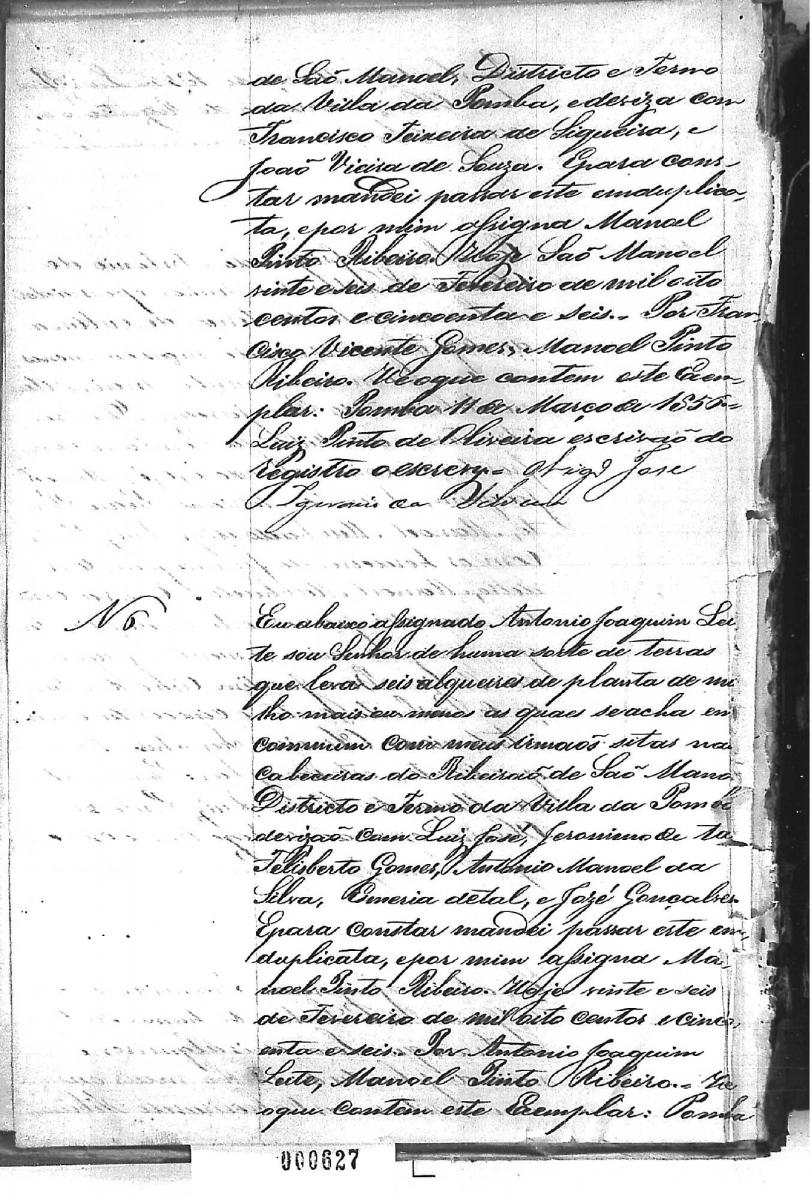 de Saõ Manoel, Districto e Termo
da Villa da Pomba, e deviza com
Francisco Teixeira de Siqueira, e
Joaõ Vieira de Souza. Epara cons-
tar mandei passar este emduplica-
ta, epor mim assigna Manoel
Pinto Ribeiro. Hoje Saõ Manoel
vinte e seis de Fevereiro de mil oito
centos e cincoenta e seis. Por Fran-
cisco Vicente Gomes, Manoel Pinto
Ribeiro. He oque contem este Exem-
plar: Pomba 11 de Março de 1856
Luiz Pinto de Oliveira escrivaõ do
registro o escrevy. O Vigº Jose
da
N 6.
Eu abaixo assignado Antonio Joaquim Lei
te sou Senhor de huma sorte de terras
que leva seis alqueires de planta de mi
lho mais ou menos as quaes se acha em
commum com meus irmaõs sitas na
cabeceiras do Ribeiraõ de Saõ Mano
Districto e Termo da Villa da Pomb
devizaõ com Luiz José, Jeronimo de ta
Felisberto Gomes, Antonio Manoel da
Silva, Emeria detal, e Jozé Gonçalves.
Epara constar mandei passar este em
duplicata, epor mim assigna Ma-
noel Pinto Ribeiro. Hoje vinte e seis
de Fevereiro de mil oito centos e cinco
enta e seis. Por Antonio Joaquim
Leite, Manoel Pinto Ribeiro. He
oque contem este Exemplar: Pomba
000627